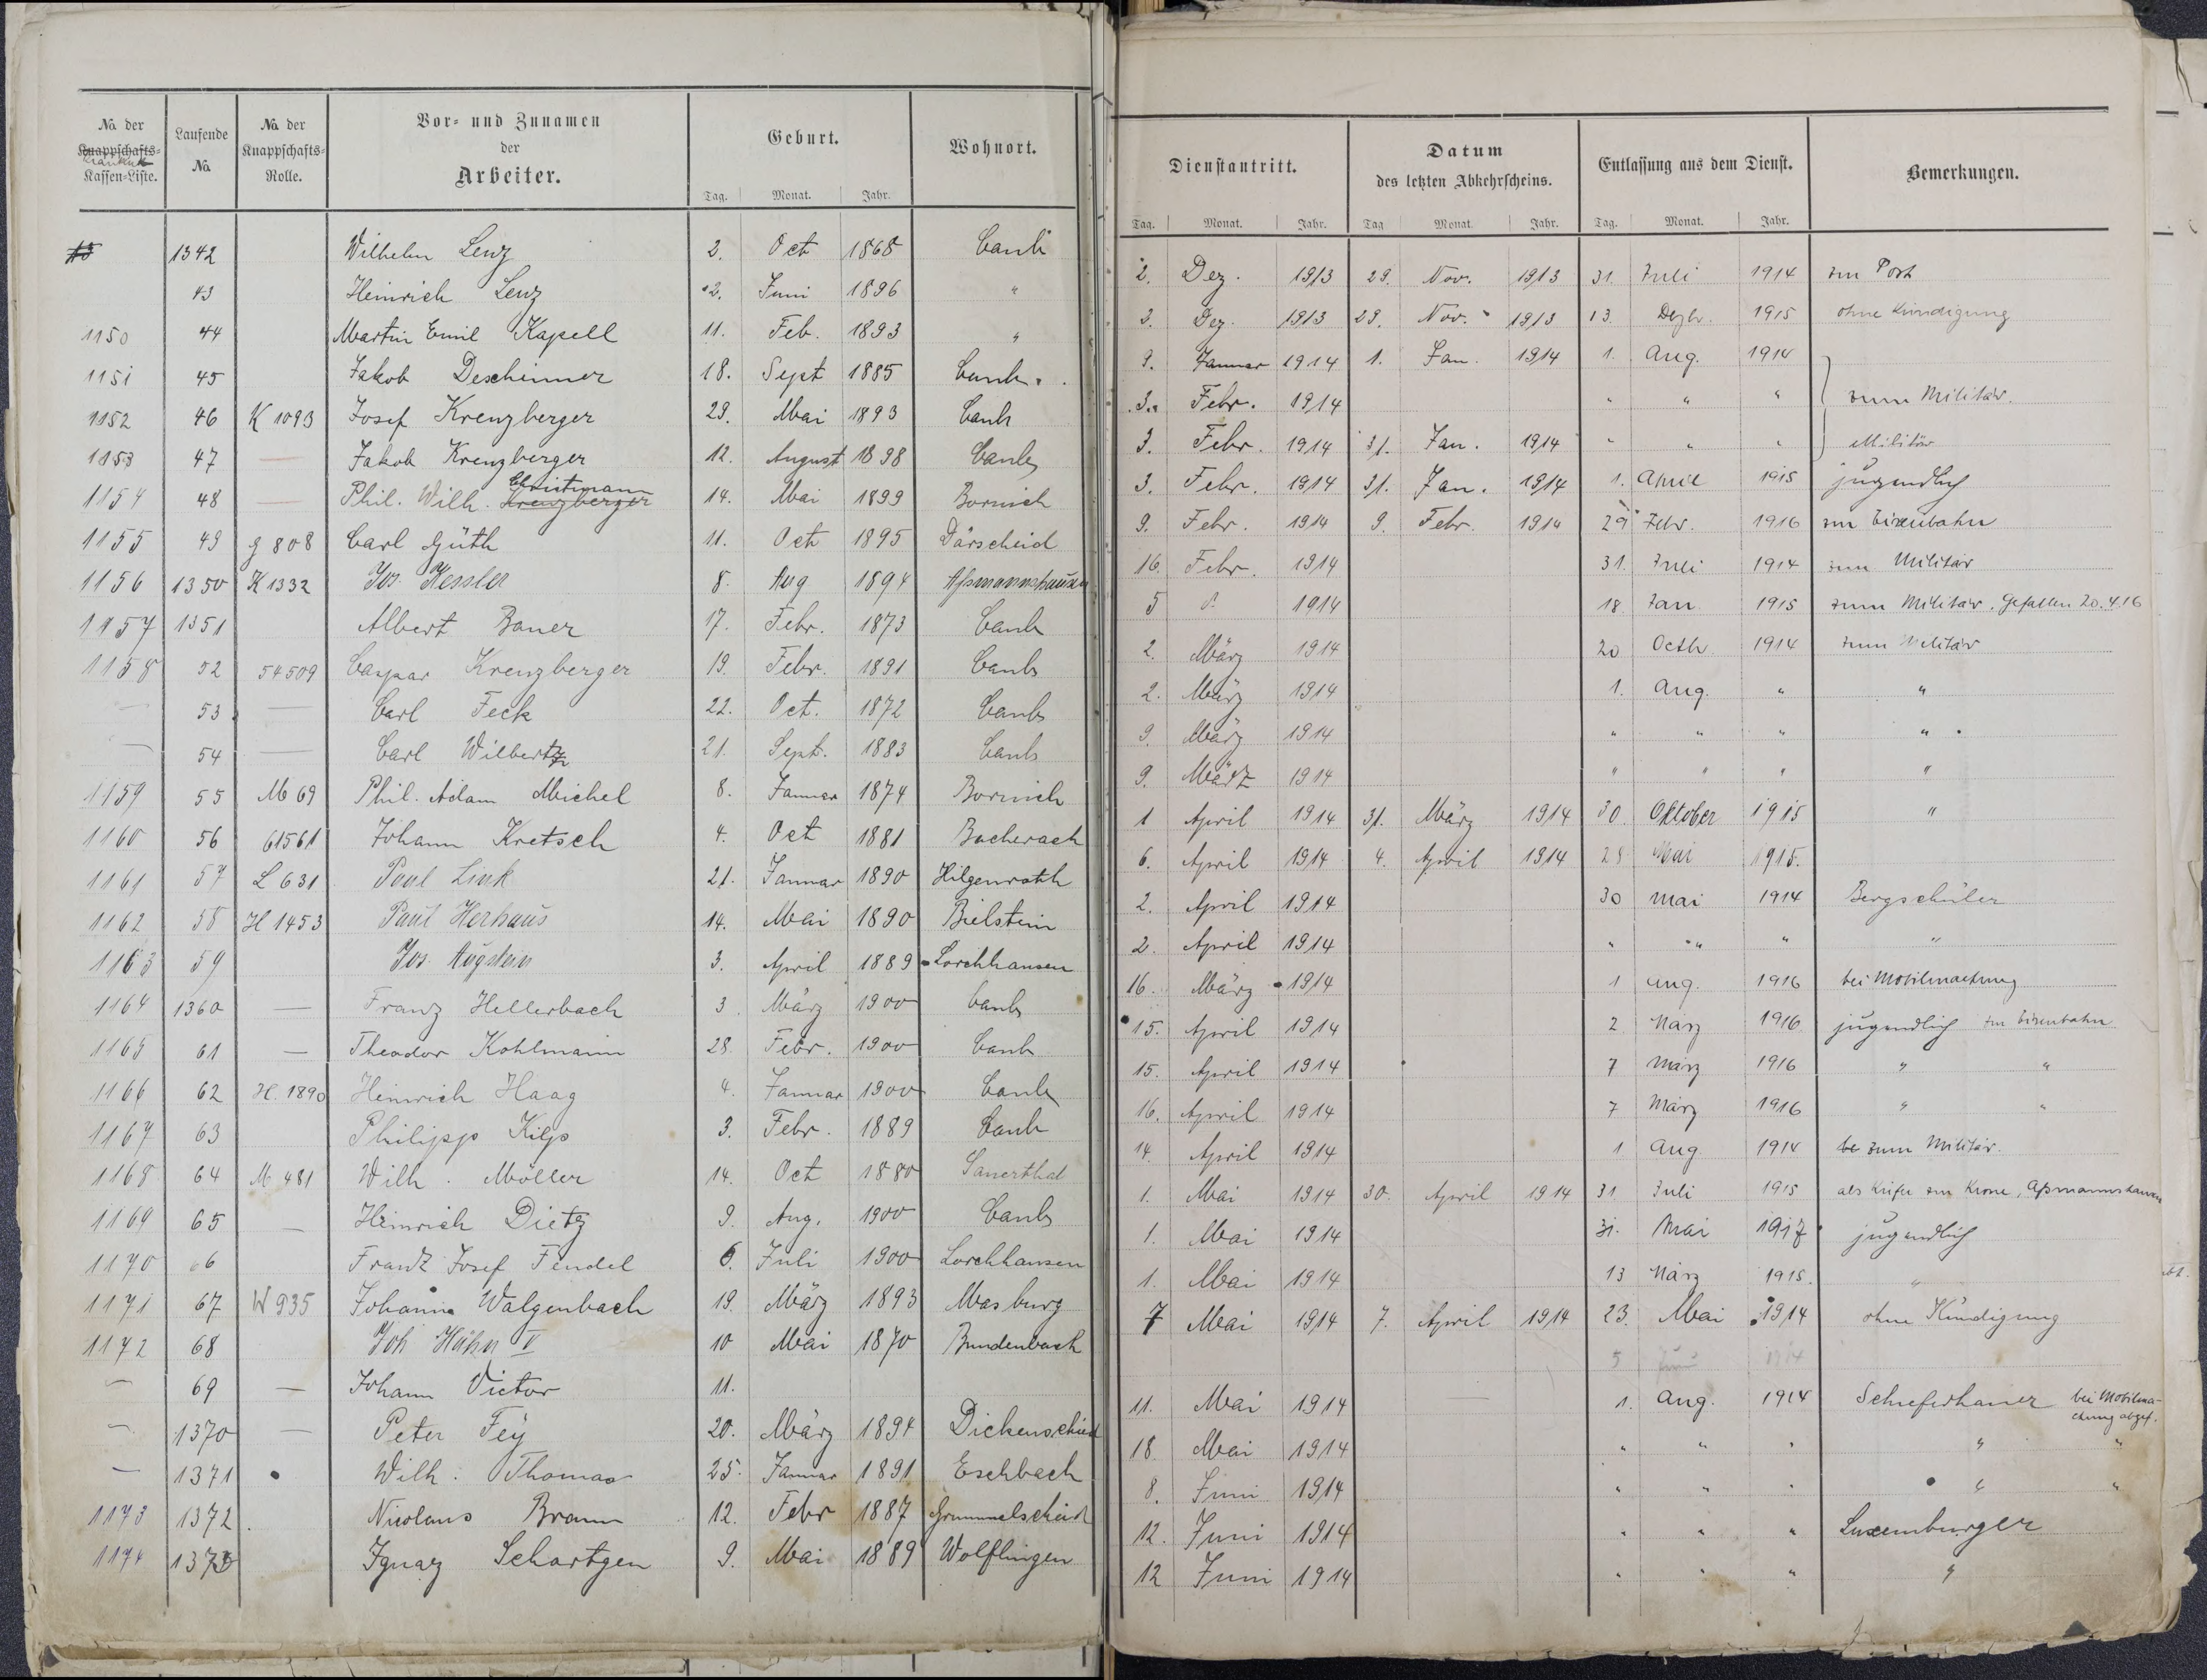 No. der Knappschafts- Kassen-Liste.
Krankn
Laufende No.
No. der Knappschafts-Rolle.
Vor- und Zunamen der Arbeiter.
Geburt.
Tag. Monat. Jahr.
Wohnort.
13 1342 Wilhelm Lenz 2. Oct 1868 Caub
43 Heinrich Lenz 2. Juni 1896 "
1150 44 Martin Emil Kapell 11. Feb. 1893 "
1151 45 Jakob Deschinner 18. Sept 1885 Caub.
1152 46 K 1093 Josef Kreuzberger 29. Mai 1893 Caub
1153 47 — Jakob Kreuzberger 12. August 1898 Caub
1154 48 — Phil. Wilh. Kreuzberger Christmann 14. Mai 1899 Bornich
1155 49 G 808 Carl Güth 11. Oct 1895 Därscheid
1156 1350 K 1332 Jos. Kessler 8. Aug 1894 Assmannshausen
1157 1351 Albert Bauer 17. Febr. 1873 Caub
1158 52 54509 Caspar Kreuzberger 19. Febr. 1891 Caub
— 53 — Carl Feck 22. Oct. 1872 Caub
— 54 — Carl Wilbertz 21. Sept. 1883 Caub
1159 55 M 69 Phil. Adam Michel 8. Januar 1874 Bornich
1160 56 61561 Johann Kretsch 4. Oct 1881 Bacherach
1161 57 L 631 Paul Link 21. Januar 1890 Hilgenroth
1162 58 H 1453 Paul Herhaus 14. Mai 1890 Bielstein
1163 59 Jos. Augstein 3. April 1889 Lorchhausen
1164 1360 — Franz Hellerbach 3. März 1900 Caub
1165 61 — Theodor Kohlmann 28. Febr. 1900 Caub
1166 62 H. 1890 Heinrich Haag 4. Januar 1900 Caub
1167 63 Philipp Kilp 3. Febr. 1889 Caub
1168 64 M 481 Wilh. Möller 14. Oct 1880 Sauerthal
1169 65 — Heinrich Dietz 9. Aug. 1900 Caub
1170 66 Franz Josef Fendel 6. Juli 1900 Lorchhausen
1171 67 W 935 Johann Walgenbach 19. März 1893 Masburg
1172 68 Joh Hähn V 10 Mai 1870 Bundenbach
— 69 — Johann Victor 11.
— 1370 — Peter Fey 20. März 1894 Dickenschied
— 1371 Wilh. Thomas 25. Januar 1891 Eschbach
1173 1372 Nicolaus Braun 12. Febr 1887 Grummelscheid
1174 1373 Ignaz Schartgen 9. Mai 1889 Wolflingen
Dienstantritt.
Tag. Monat. Jahr.
Datum des letzten Abkehrscheins.
Tag Monat. Jahr.
Entlassung aus dem Dienst.
Tag. Monat. Jahr.
Bemerkungen.
2. Dez. 1913 29. Nov. 1913 31. Juli 1914 zur Post
3. Dez. 1913 29. Nov. 1913 13. Dezbr. 1915 ohne Kündigung
9. Januar 1914 1. Jan. 1914 1. Aug. 1914
3. Febr. 1914 " " " zum Militär.
3. Febr. 1914 31. Jan. 1914 " " " Militär
3. Febr. 1914 31. Jan. 1914 1. April 1915 jugendlich
9. Febr. 1914 9. Febr. 1914 29 Febr. 1916 zur Eisenbahn
16. Febr. 1914 31. Juli 1914 zum Militär
5 1914 18 Jan 1915 zum Militär. Gefallen 20.4.16
2. März 1914 20 Octbr 1914 zum Militär
2. März 1914 1. Aug. " "
9. März 1914 " " " "
9. März 1914 " " " "
1 April 1914 31. März 1914 30. Oktober 1915 "
6. April 1914 4. April 1914 28 Mai 1915.
2. April 1914 30 Mai 1914 Bergschüler
2. April 1914 " " " "
16. März 1914 1 Aug. 1916 bei Mobilmachung
15. April 1914 2. März 1916 jugendlich zur Eisenbahn
15. April 1914 7 März 1916 " "
16. April 1914 7 März 1916 " "
14. April 1914 1 Aug 1914 be zum Militär.
1. Mai 1914 30. April 1914 31 Juli 1915 als Küfer zur Krone, Assmannshausen
1. Mai 1914 31. Mai 1917 jugendlich
1. Mai 1914 13 März 1915. "
7 Mai 1914 7. April 1914 23. Mai 1914 ohne Kündigung
5 Juni 1914
11. Mai 1914 — 1. Aug. 1914 Schieferhauer bei Mobilma-
chung abgef.
18. Mai 1914 " " " " "
8. Juni 1914 " " " " "
12. Juni 1914 " " " Luxemburger
12 Juni 1914 " " " "